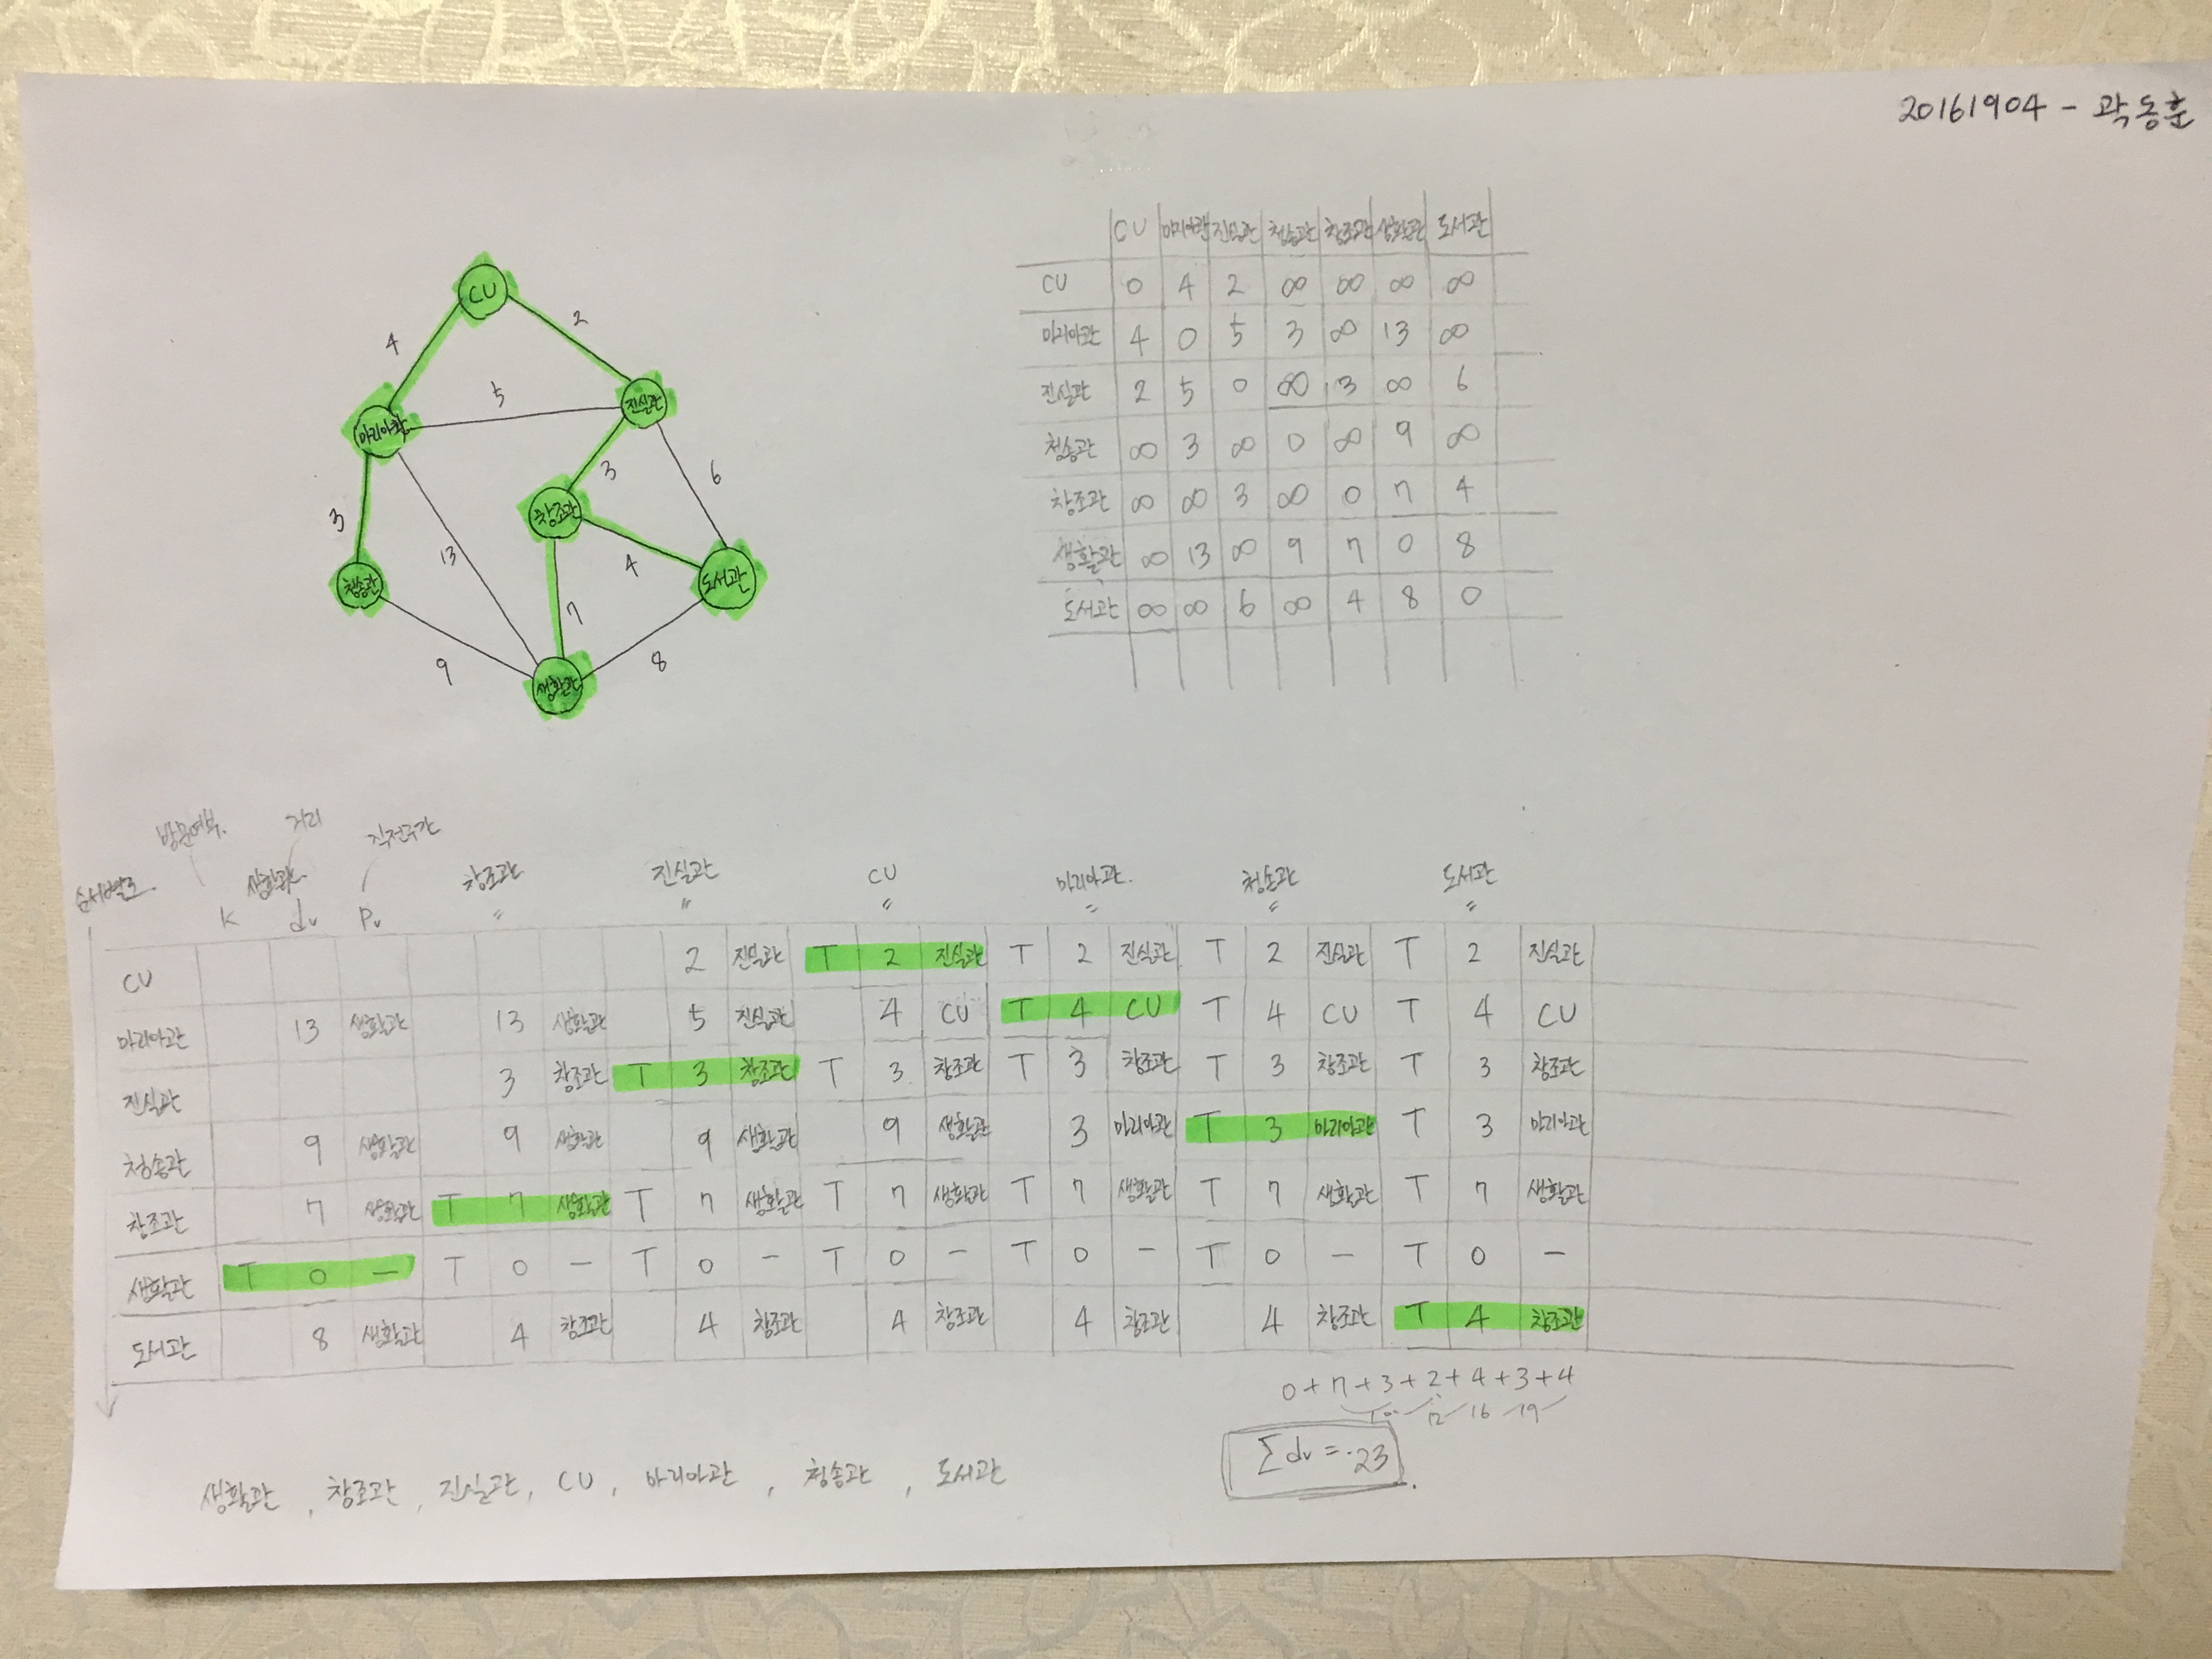 20161904 - 곽동훈
CU
4
2
마리아관
5
진실관
3
6
창조관
3
13
4
청송관
도서관
7
9
8
생활관
CU 마리아관 진실관 청송관 창조관 생활관 도서관
CU 0 4 2 ∞ ∞ ∞ ∞
마리아관 4 0 5 3 ∞ 13 ∞
진실관 2 5 0 ∞ 3 ∞ 6
청송관 ∞ 3 ∞ 0 ∞ 9 ∞
창조관 ∞ ∞ 3 ∞ 0 7 4
생활관 ∞ 13 ∞ 9 7 0 8
도서관 ∞ ∞ 6 ∞ 4 8 0
방문여부. 거리 직전국가
생활관. 창조관 진실관 CU 마리아관. 청송관 도서관
K dv Pv 〃 〃 〃 〃 〃 〃
CU 2 진실관 T 2 진실관 T 2 진실관 T 2 진실관 T 2 진실관
마리아관 13 생활관 13 생활관 5 진실관 4 CU T 4 CU T 4 CU T 4 CU
진실관 3 창조관 T 3 창조관 T 3 창조관 T 3 창조관 T 3 창조관 T 3 창조관
청송관 9 생활관 9 생활관 9 생활관 9 생활관 3 마리아관 T 3 마리아관 T 3 마리아관
창조관 7 생활관 T 7 생활관 T 7 생활관 T 7 생활관 T 7 생활관 T 7 생활관 T 7 생활관
생활관 T 0 - T 0 - T 0 - T 0 - T 0 - T 0 - T 0 -
도서관 8 생활관 4 창조관 4 창조관 4 창조관 4 창조관 4 창조관 T 4 창조관
0+7+3+2+4+3+4
10 12 16 19
∑dv = 23
생활관, 창조관, 진실관, CU, 마리아관, 청송관, 도서관